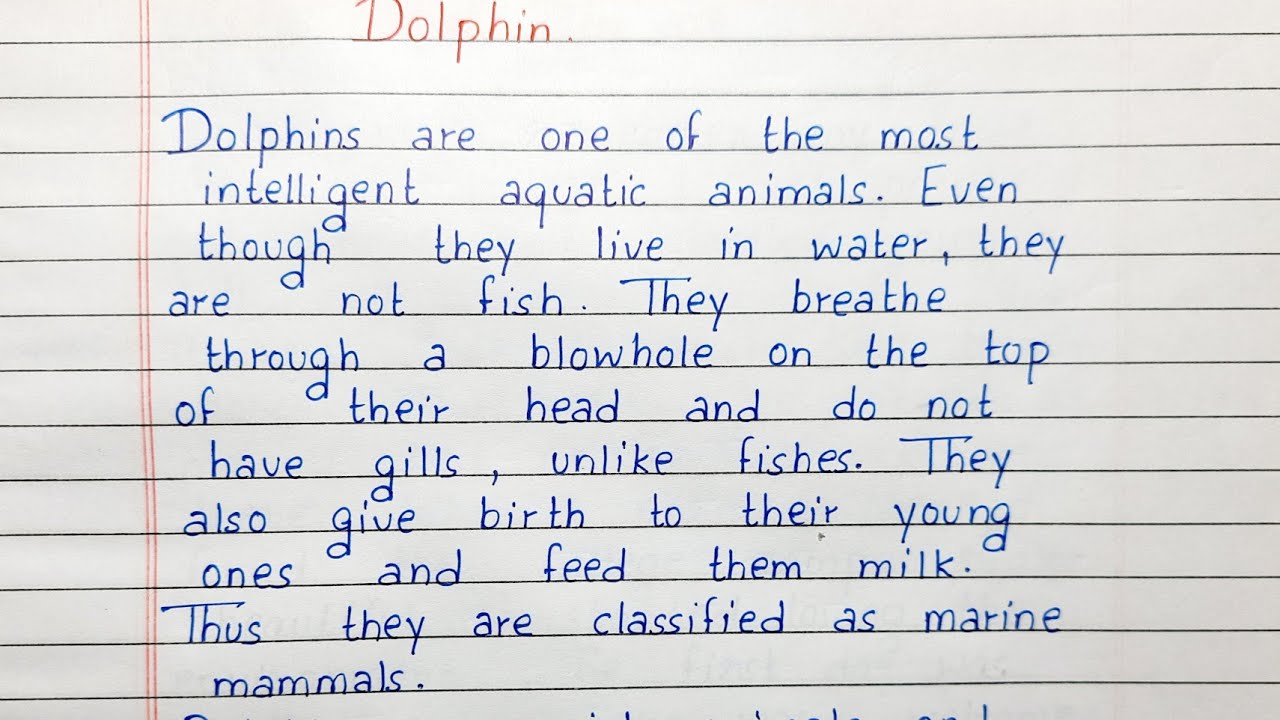 Dolphin.
Dolphins are one of the most
intelligent aquatic animals. Even
though they live in water, they
are not fish. They breathe
through a blowhole on the top
of their head and do not
have gills, unlike fishes. They
also give birth to their young
ones and feed them milk.
Thus they are classified as marine
mammals.